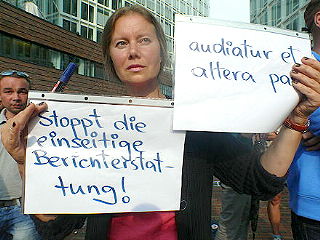 Stoppt die
einseitige
Berichterstat-
tung!
audiatur et
altera pa